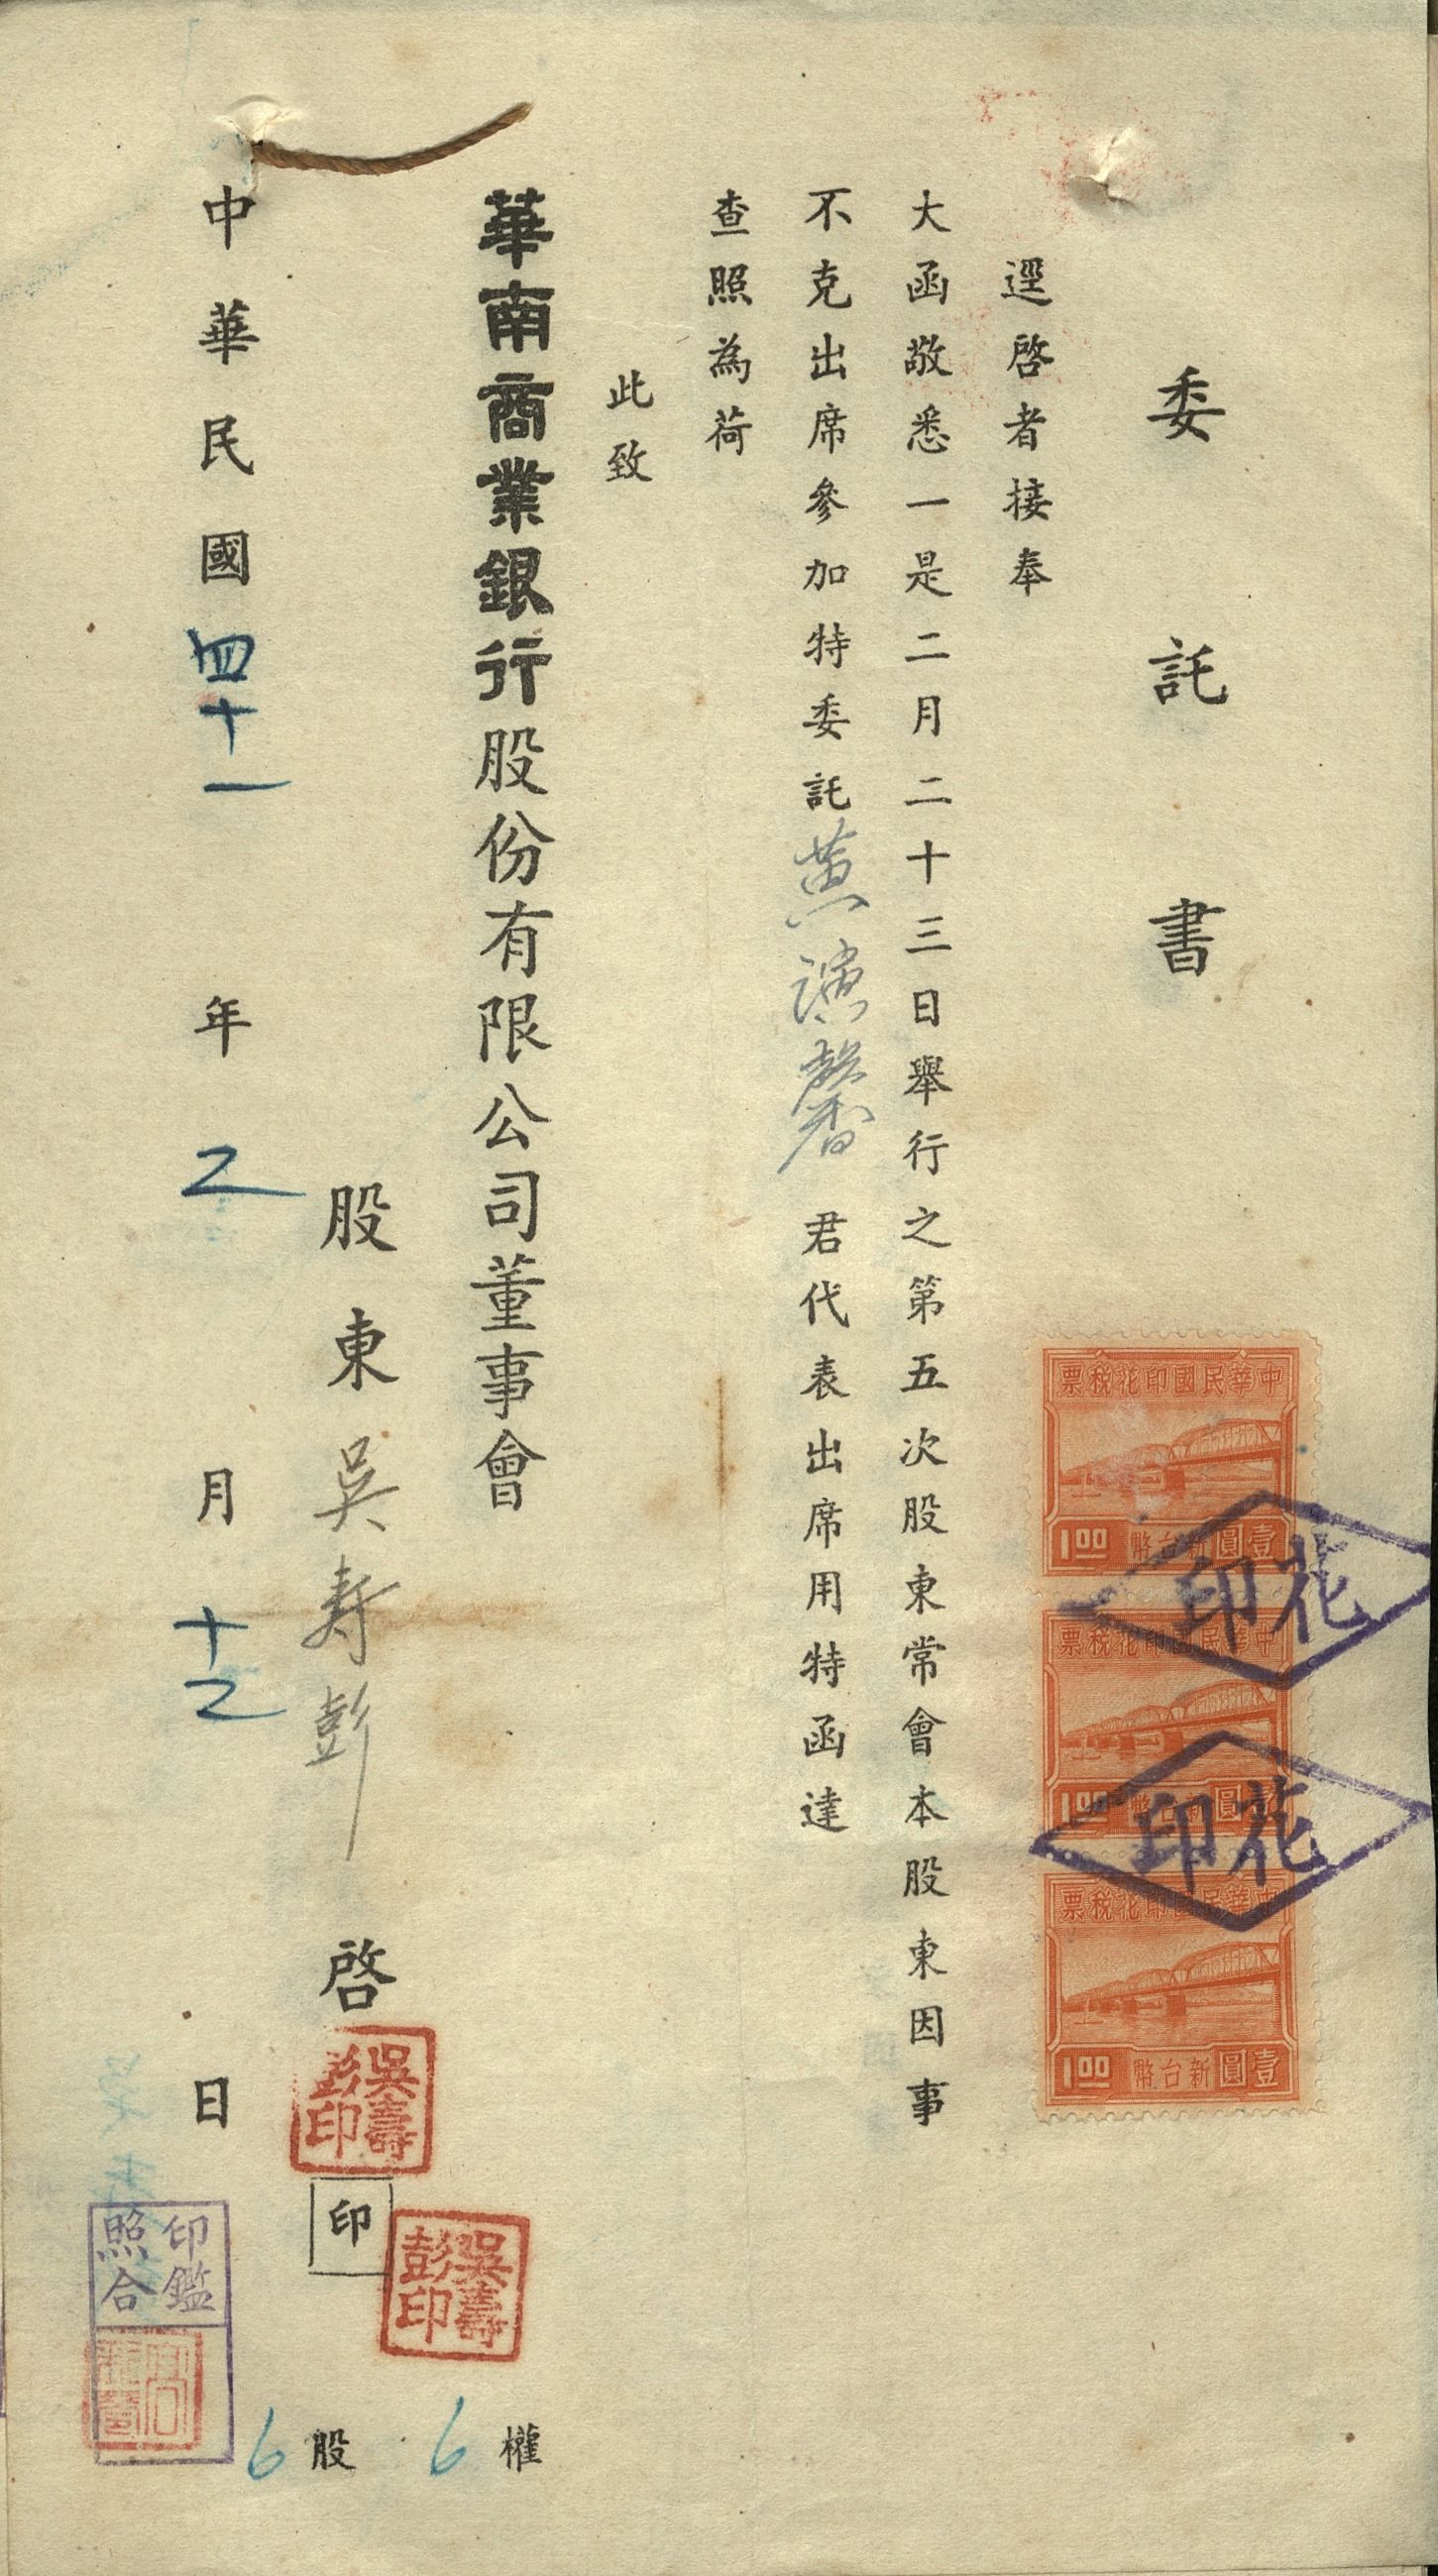 委託書
逕啓者接奉
大函敬悉一是二月二十三日舉行之第五次股東常會本股東因事
不克出席參加特委託黃演馨君代表出席用特函達
查照為荷
此致
華南商業銀行股份有限公司董事會
股東吳寿彭啓
印
中華民國四十一年二月十二日
6股 6權
吳壽彭印
吳壽彭印
印鑑照合
中華民國印花稅票
壹圓新台幣 1.00
中華民國印花稅票
壹圓新台幣 1.00
中華民國印花稅票
壹圓新台幣 1.00
花印
花印